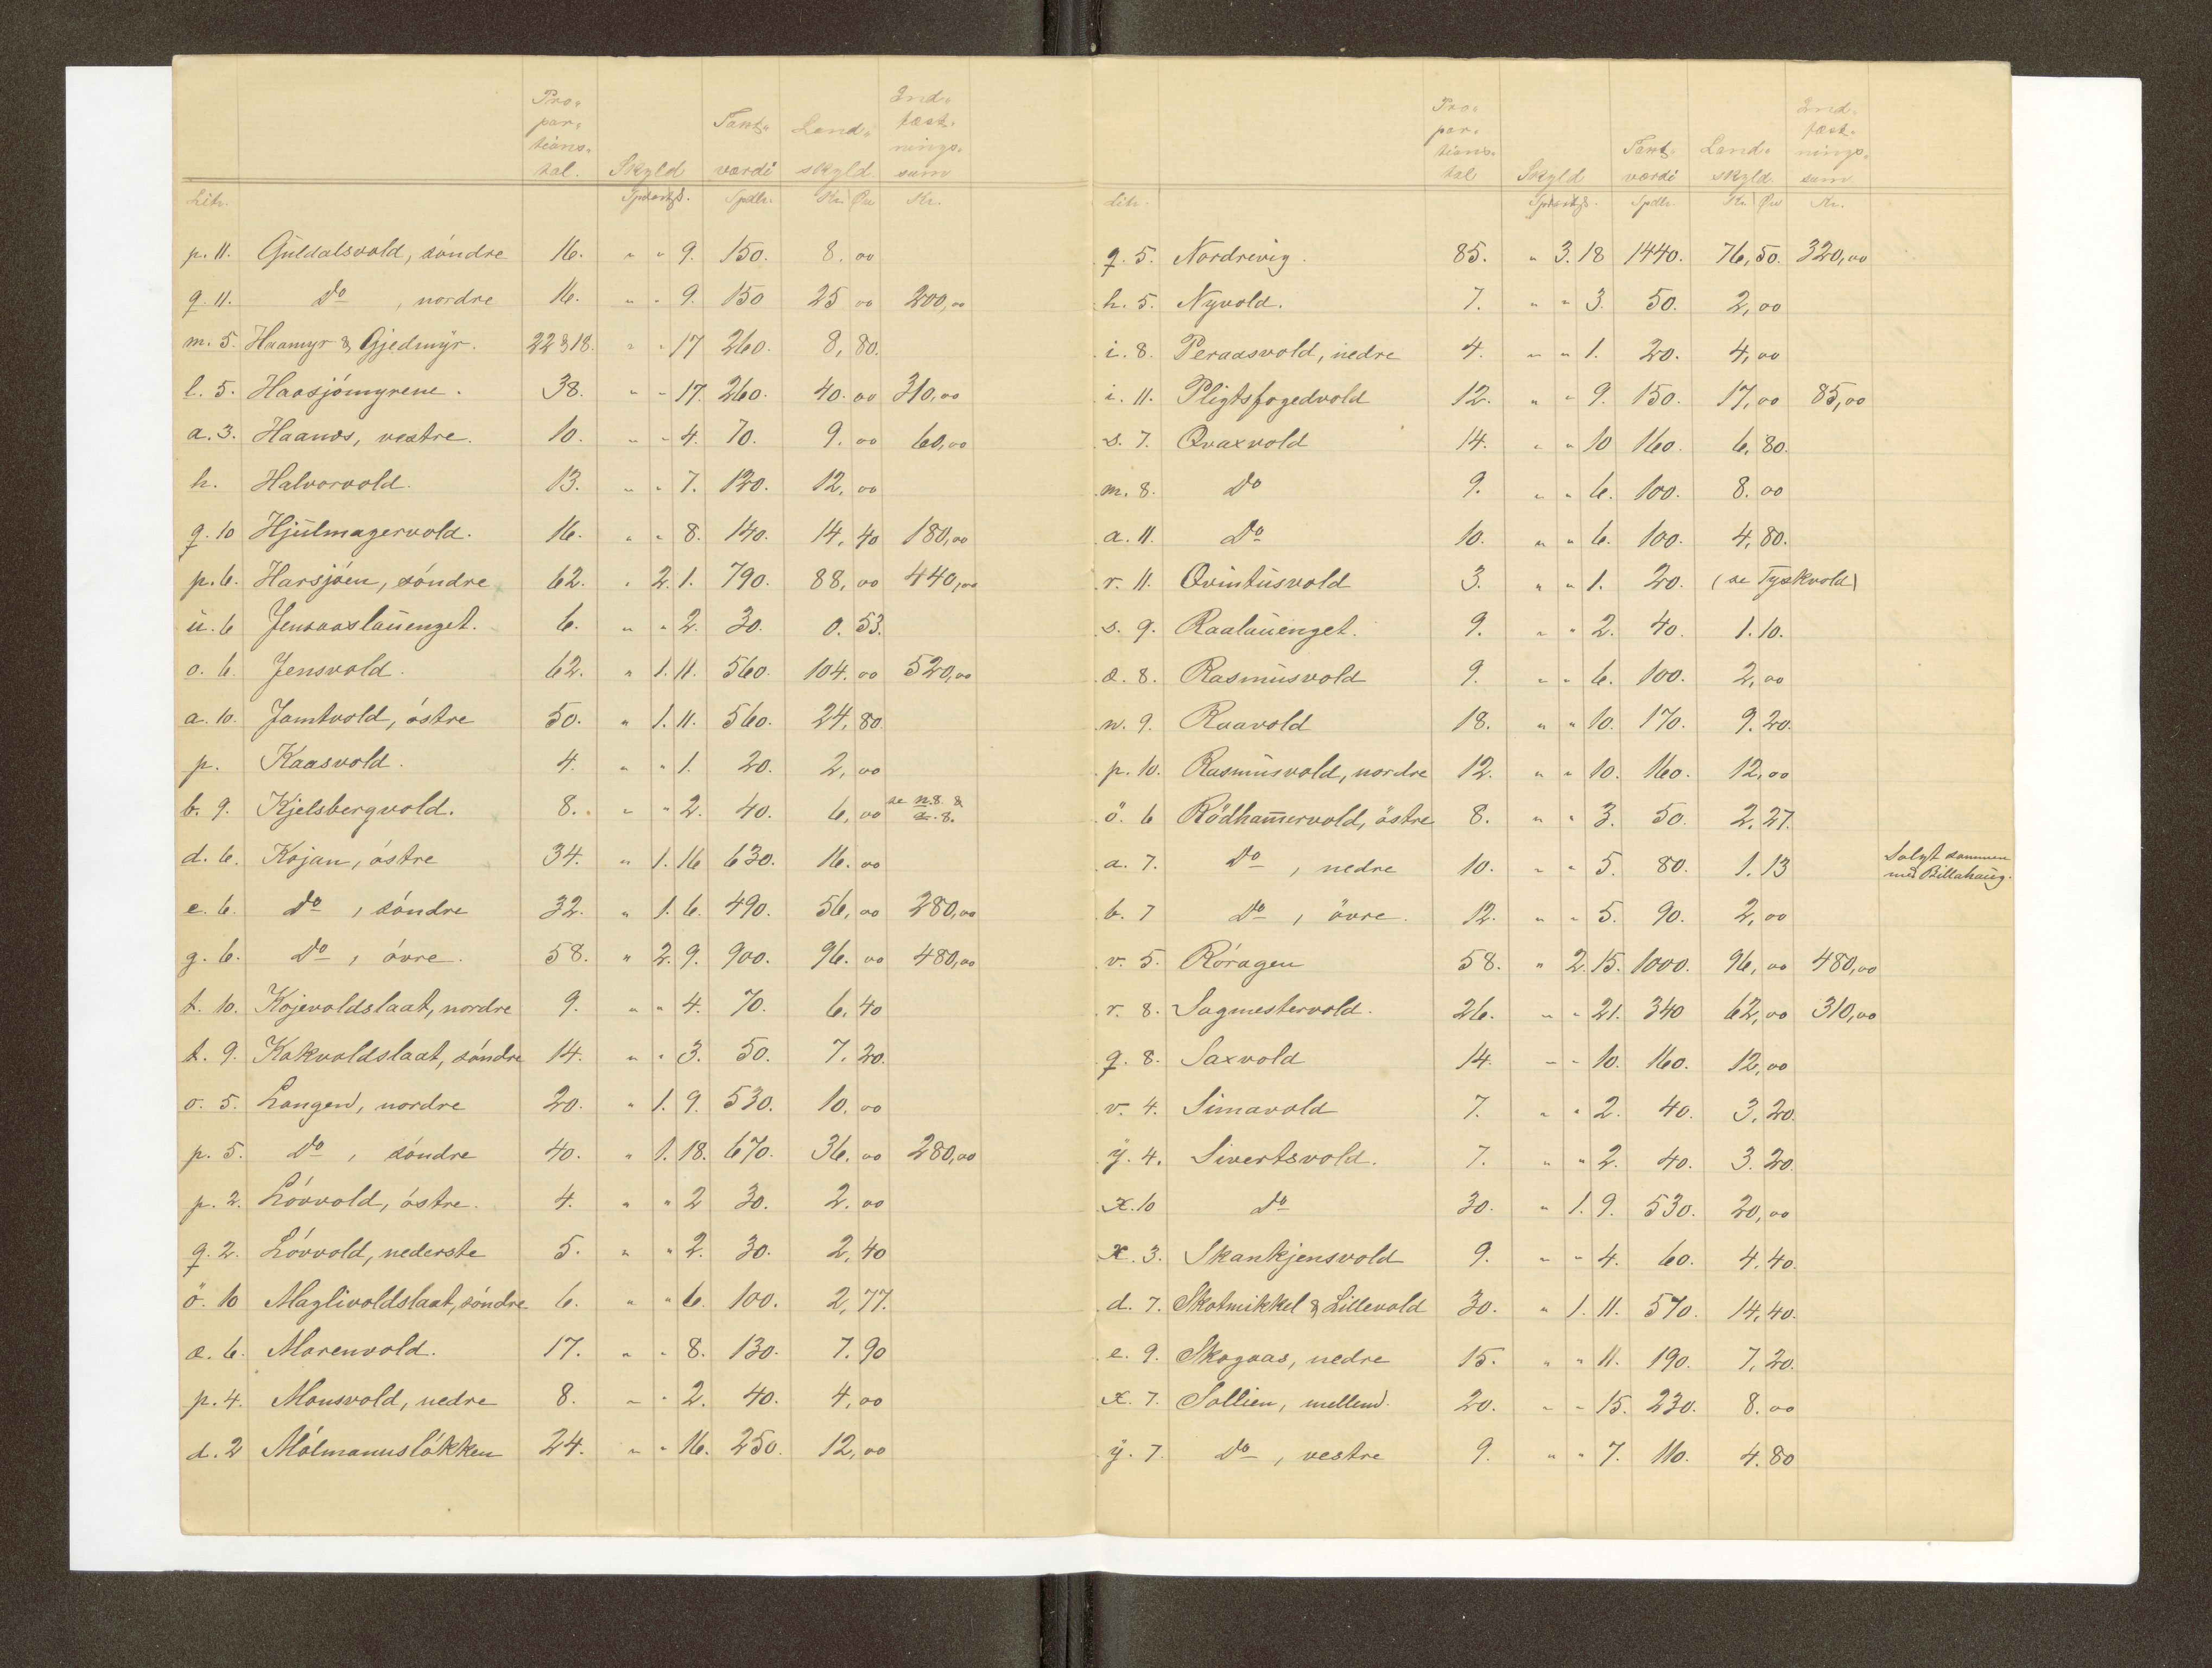 Pro-
por-
tions-
tal. Skyld Taxt- værdi Land- skyld Ind- fæst- nings- sum
Litr. Spd. ort ſk. Spdlr. Kr. Øre Kr.
p. 11. Guldalsvold, söndre 16. " " 9. 150. 8. 00
q. 11. Do, nordre 16. " " 9. 150 25 00 200,00
m. 5. Haamyr & Gjedmyr. 22 & 18. " " 17 260. 8, 80.
l. 5. Haasjömyrene. 38. " " 17. 260. 40. 00 310,00
a. 3. Haanæs, vestre. 10. " " 4. 70. 9. 00 60,00
h. Halvorvold. 13. " " 7. 120. 12, 00
q. 10 Hjulmagervold. 16. " " 8. 140. 14, 40 180,00
p. 6. Harsjöen, söndre 62. " 2. 1. 790. 88, 00 440,00
u. 6 Jensaaslauenget. 6. " " 2. 30. 0. 53.
o. 6. Jensvold. 62. " 1. 11. 560. 104. 00 520,00
a. 10. Jamtvold, östre 50. " 1. 11. 560. 24, 80.
p. Kaasvold. 4. " " 1. 20. 2, 00
b. 9. Kjelsbergvold. 8. " " 2. 40. 6, 00 se n. 8. & æ. 8.
d. 6. Kojan, östre 34. " 1. 16 630. 16. 00
e. 6. Do, söndre 32. " 1. 6. 490. 56, 00 280,00
g. 6. Do, övre. 58. " 2. 9. 900. 96. 00 480,00
t. 10. Kojevoldslaat, nordre 9. " " 4. 70. 6. 40
t. 9. Kokvoldslaat, söndre 14. " " 3. 50. 7. 20.
o. 5. Langen, nordre 20. " 1. 9. 530. 10. 00
p. 5. Do, söndre 40. " 1. 18. 670. 36. 00 280,00
p. 2. Lövvold, östre. 4. " " 2 30. 2. 00
q. 2. Lövvold, nederste 5. " " 2. 30. 2, 40
ö. 10 Maglivoldslaat, söndre. 6. " " 6. 100. 2, 77.
æ. 6. Marenvold. 17. " " 8. 130. 7. 90
p. 4. Monsvold, nedre 8. " " 2. 40. 4, 00
d. 2 Mölmannslökken 24. " " 16. 250. 12, 00
Pro-
por-
tions-
tal Skyld Taxt- værdi Land- skyld. Ind- fæst- nings- sum
Litr. Spd. ort ſk. Spdlr. Kr. Øre Kr.
q. 5. Nordrevig. 85. " 3. 18 1440. 76, 50. 320,00
h. 5. Nyvold. 7. " " 3. 50. 2, 00
i. 8. Peraasvold, nedre 4. " " 1. 20. 4, 00
i. 11. Pligtsfogedvold 12. " " 9. 150. 17, 00 85,00
s. 7. Qvaxvold 14. " " 10 160. 6, 80.
m. 8. Do 9. " " 6. 100. 8. 00
a. 11. Do 10. " " 6. 100. 4, 80.
r. 11. Qvintusvold 3. " " 1. 20. (se Tyskvold)
s. 9. Raalauenget. 9. " " 2. 40. 1. 10.
æ. 8. Rasmusvold 9. " " 6. 100. 2, 00
n. 9. Raavold 18. " " 10. 170. 9. 20.
p. 10. Rasmusvold, nordre 12. " " 10. 160. 12, 00
ö. 6 Rödham̅ervold, östre 8. " " 3. 50. 2. 27.
a. 7. Do, nedre 10. " " 5. 80. 1. 13 Solgt sammen
med Billahaug.
b. 7 Do, övre. 12. " " 5. 90. 2, 00
v. 5. Röragen 58. " 2. 15. 1000. 96, 00 480,00
r. 8. Sagmestervold. 26. " " 21. 340 62, 00 310,00
q. 8. Saxvold 14. " " 10. 160. 12, 00
v. 4. Simavold 7. " " 2. 40. 3, 20.
y. 4. Sivertsvold. 7. " " 2. 40. 3. 20.
x. 10 Do 30. " 1. 9. 530. 20, 00
x. 3. Skankjensvold 9. " " 4. 60. 4, 40.
d. 7. Skotmikkel & Lillevold 30. " 1. 11. 570. 14, 40.
e. 9. Skogaas, nedre 15. " " 11. 190. 7, 20.
x. 7. Sollien, mellem. 20. " " 15. 230. 8. 00
y. 7. Do, vestre 9. " " 7. 110. 4. 80